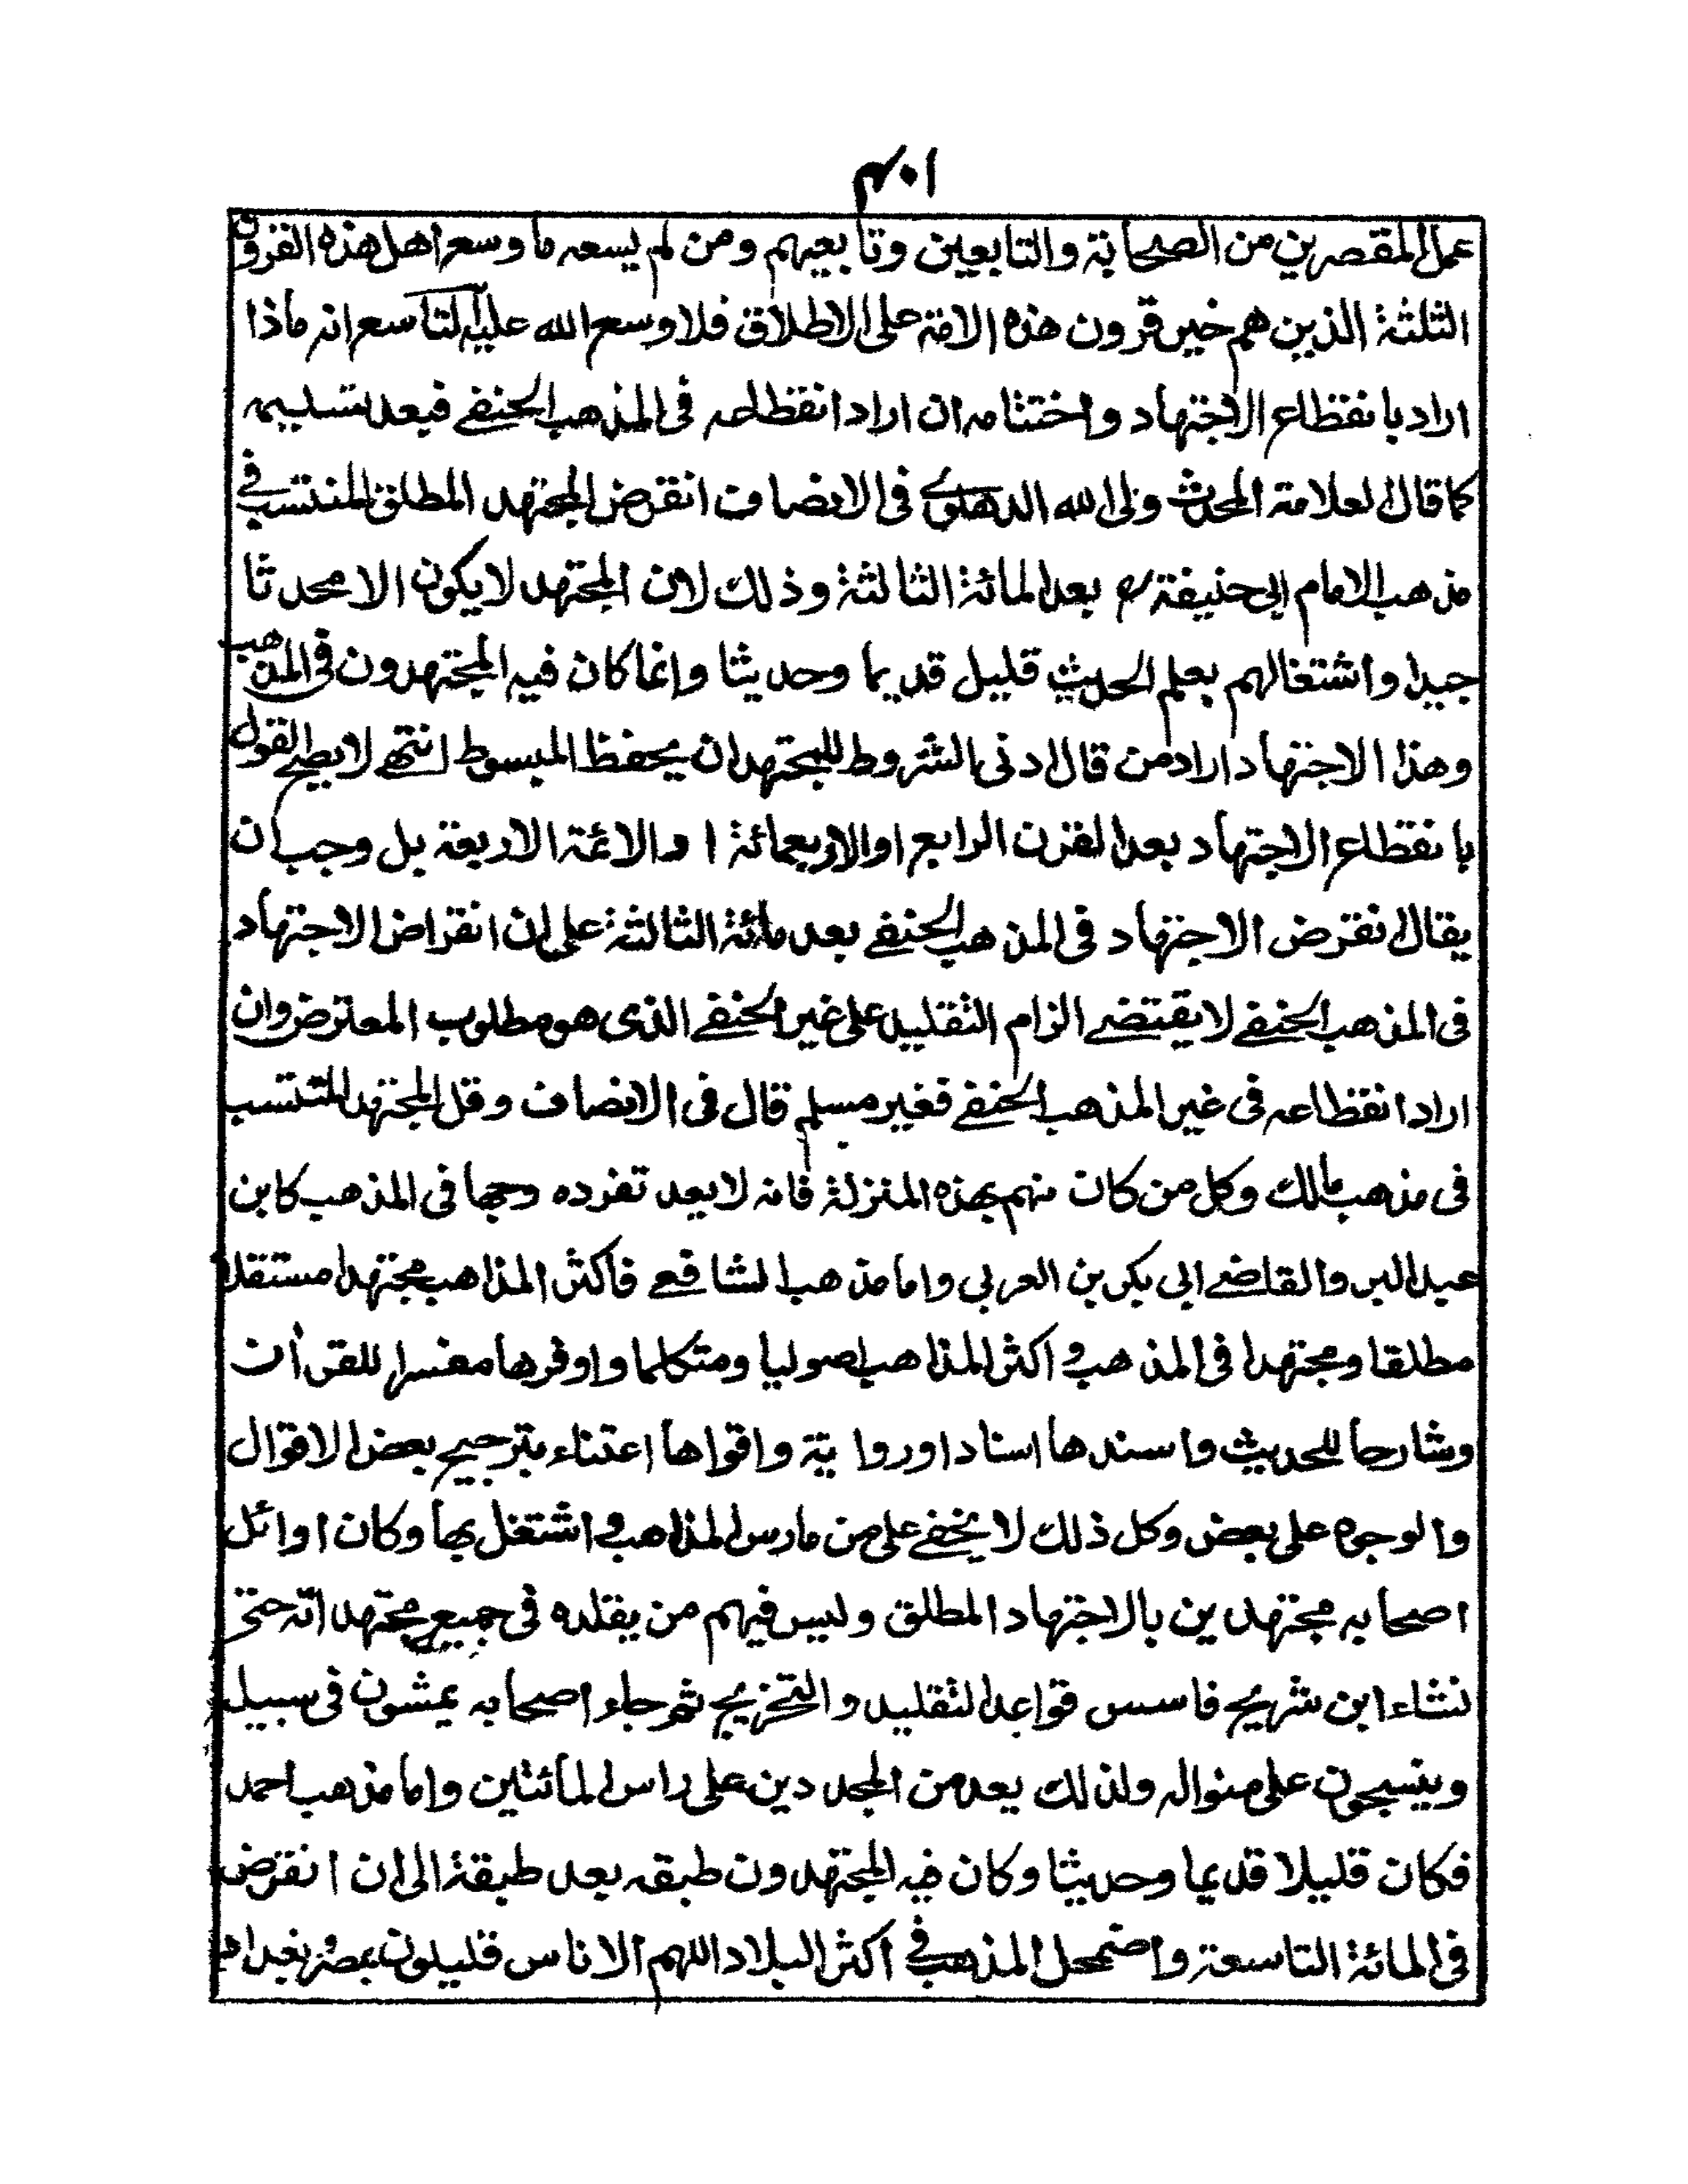 ۱۰۴
عمل المقصرين من الصحابة والتابعين وتابعيهم ومن لم يسعه ما وسع اهل هذه القرون
الثلثة الذين هم خير قرون هذه الامة على الاطلاق فلا وسع الله عليه التاسع انه ماذا
اراد بانقطاع الاجتهاد واختتامه ان اراد انقطاعه فى المذهب الحنفے فبعد تسليمه
كما قال العلامة المحدث ولى الله الدهلوے فى الانصاف انقرض المجتهد المطلق المنتسب فے
مذهب الامام ابى حنيفةؒ بعد المائة الثالثة وذلك لان المجتهد لا يكون الا محدثا
جيدا واشتغالهم بعلم الحديث قليل قديما وحديثا وانما كان فيه المجتهدون فى المذهب
وهذا الاجتهاد اراد من قال ادنى الشروط للمجتهد ان يحفظ المبسوط انتهے لا يصح القول
بانقطاع الاجتهاد بعد القرن الرابع او الاربعمائة او الائمة الاربعة بل وجب ان
يقال انقرض الاجتهاد فى المذهب الحنفے بعد مائة الثالثة على ان انقراض الاجتهاد
فى المذهب الحنفے لا يقتضے الزام التقليد على غير الحنفے الذى هو مطلوب المعترض وان
اراد انقطاعه فى غير المذهب الحنفے فغير مسلم قال فى الانصاف وقل المجتهد المنتسب
فى مذهب مالك وكل من كان منهم بهذه المنزلة فانه لا يعد تفرده وجها فى المذهب كابن
عبد البر والقاضے ابى بكر بن العربى واما مذهب الشافعے فاكثر المذاهب مجتهدا مستقلا
مطلقا ومجتهدا فى المذهب و اكثر المذاهب اصوليا ومتكلما واوفرها مفسرا للقرأن
وشارحا للحديث واسندها اسنادا ورواية واقواها اعتناء بترجيح بعض الاقوال
والوجوه على بعض وكل ذلك لا يخفے على من مارس المذاهب و اشتغل بها وكان اوائل
اصحابه مجتهدين بالاجتهاد المطلق وليس فيهم من يقلده فى جميع مجتهداته حتى
نشاء ابن شريح فاسس قواعد التقليد والتخريج ثم جاء اصحابه يمشون فى سبيله
وينسجون على منواله ولذلك يعد من المجددين على راس المأئتين واما مذهب احمد
فكان قليلا قديما وحديثا وكان فيه المجتهدون طبقه بعد طبقة الى ان انقرض
فى المائة التاسعة واضمحل المذهب فے اكثر البلاد اللهم الا ناس قليلون بمصر و بغداد